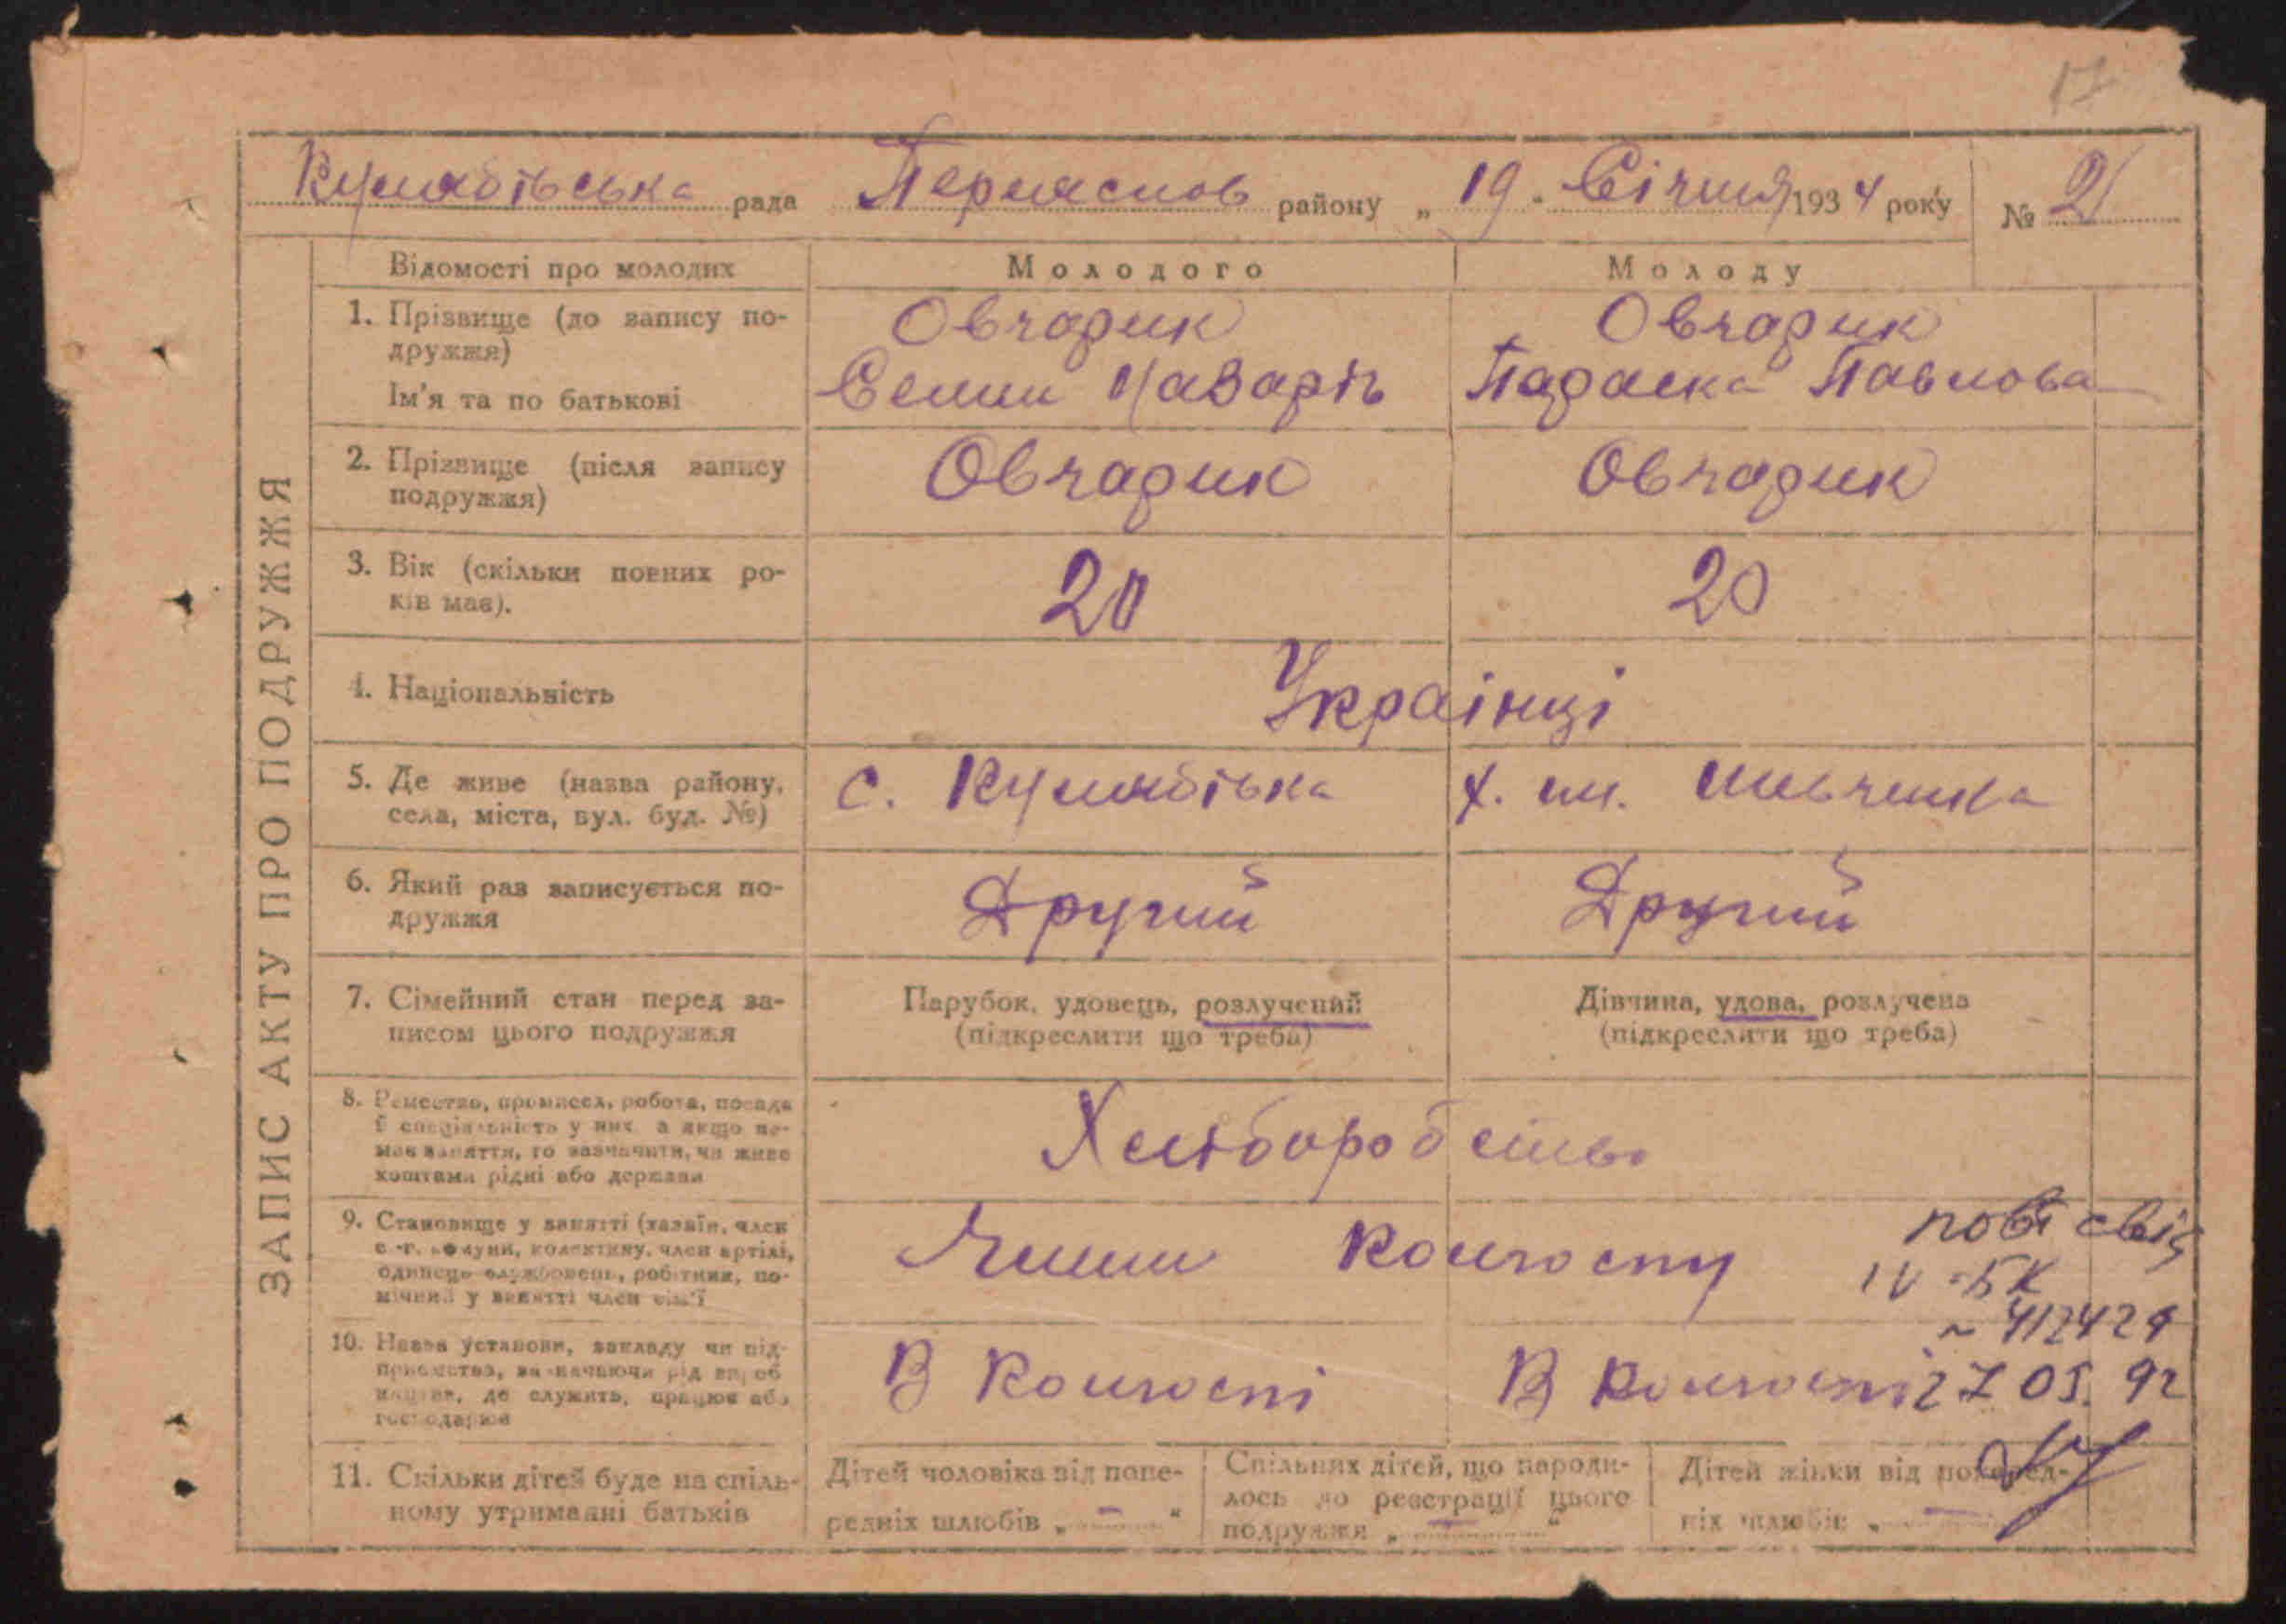 17
рада Переяслов району „ 19 " Січня 1934 року № 21
ЗАПИС АКТУ ПРО ПОДРУЖЖЯ
Відомості про молодих Молодого Молоду
1. Прізвище (до запису по-
дружжя)
Овчарик Овчарик
Ім'я та по батькові
Семен Назарів Параска Павлова
2. Прізвище (після запису
подружжя)
Овчарик Овчарик
3. Вік (скільки повних ро-
ків має).
20 20
4. Національність
Українці
5. Де живе (назва району,
села, міста, вул. буд. №)
с. х. ім. Шевченка
6. Який раз записується по-
дружжя
Другий Другий
7. Сімейний стан перед за-
писом цього подружжя
Парубок, удовець, розлучений
(підкреслити що треба)
Дівчина, удова, розлучена
(підкреслити що треба)
8. Ремество, промисел, робота, посада
й спеціяльність у них, а якщо не-
має заняття, то зазначити, чи живе
коштами рідні або держави
Хліборобство
9. Становище у занятті (хазяїн, член
с.-г. комуни, колективу, член артілі,
одинець службовець, робітник, по-
мічний у занятті член сім'ї
Члени колгоспу
повт свід
IV-БК
27 05. 92
10. Назва установи, закладу чи під-
приємства, зазначаючи рід вироб
ництва, де служить, працює або
господарює
В колгоспі В колгоспі
11. Скільки дітей буде на спіль-
ному утриманні батьків
Дітей чоловіка від попе-
редніх шлюбів „ — "
Спільних дітей, що народи-
лось до реєстрації цього
подружжя „ — "
Дітей жінки від поперед-
ніх шлюбів „ —